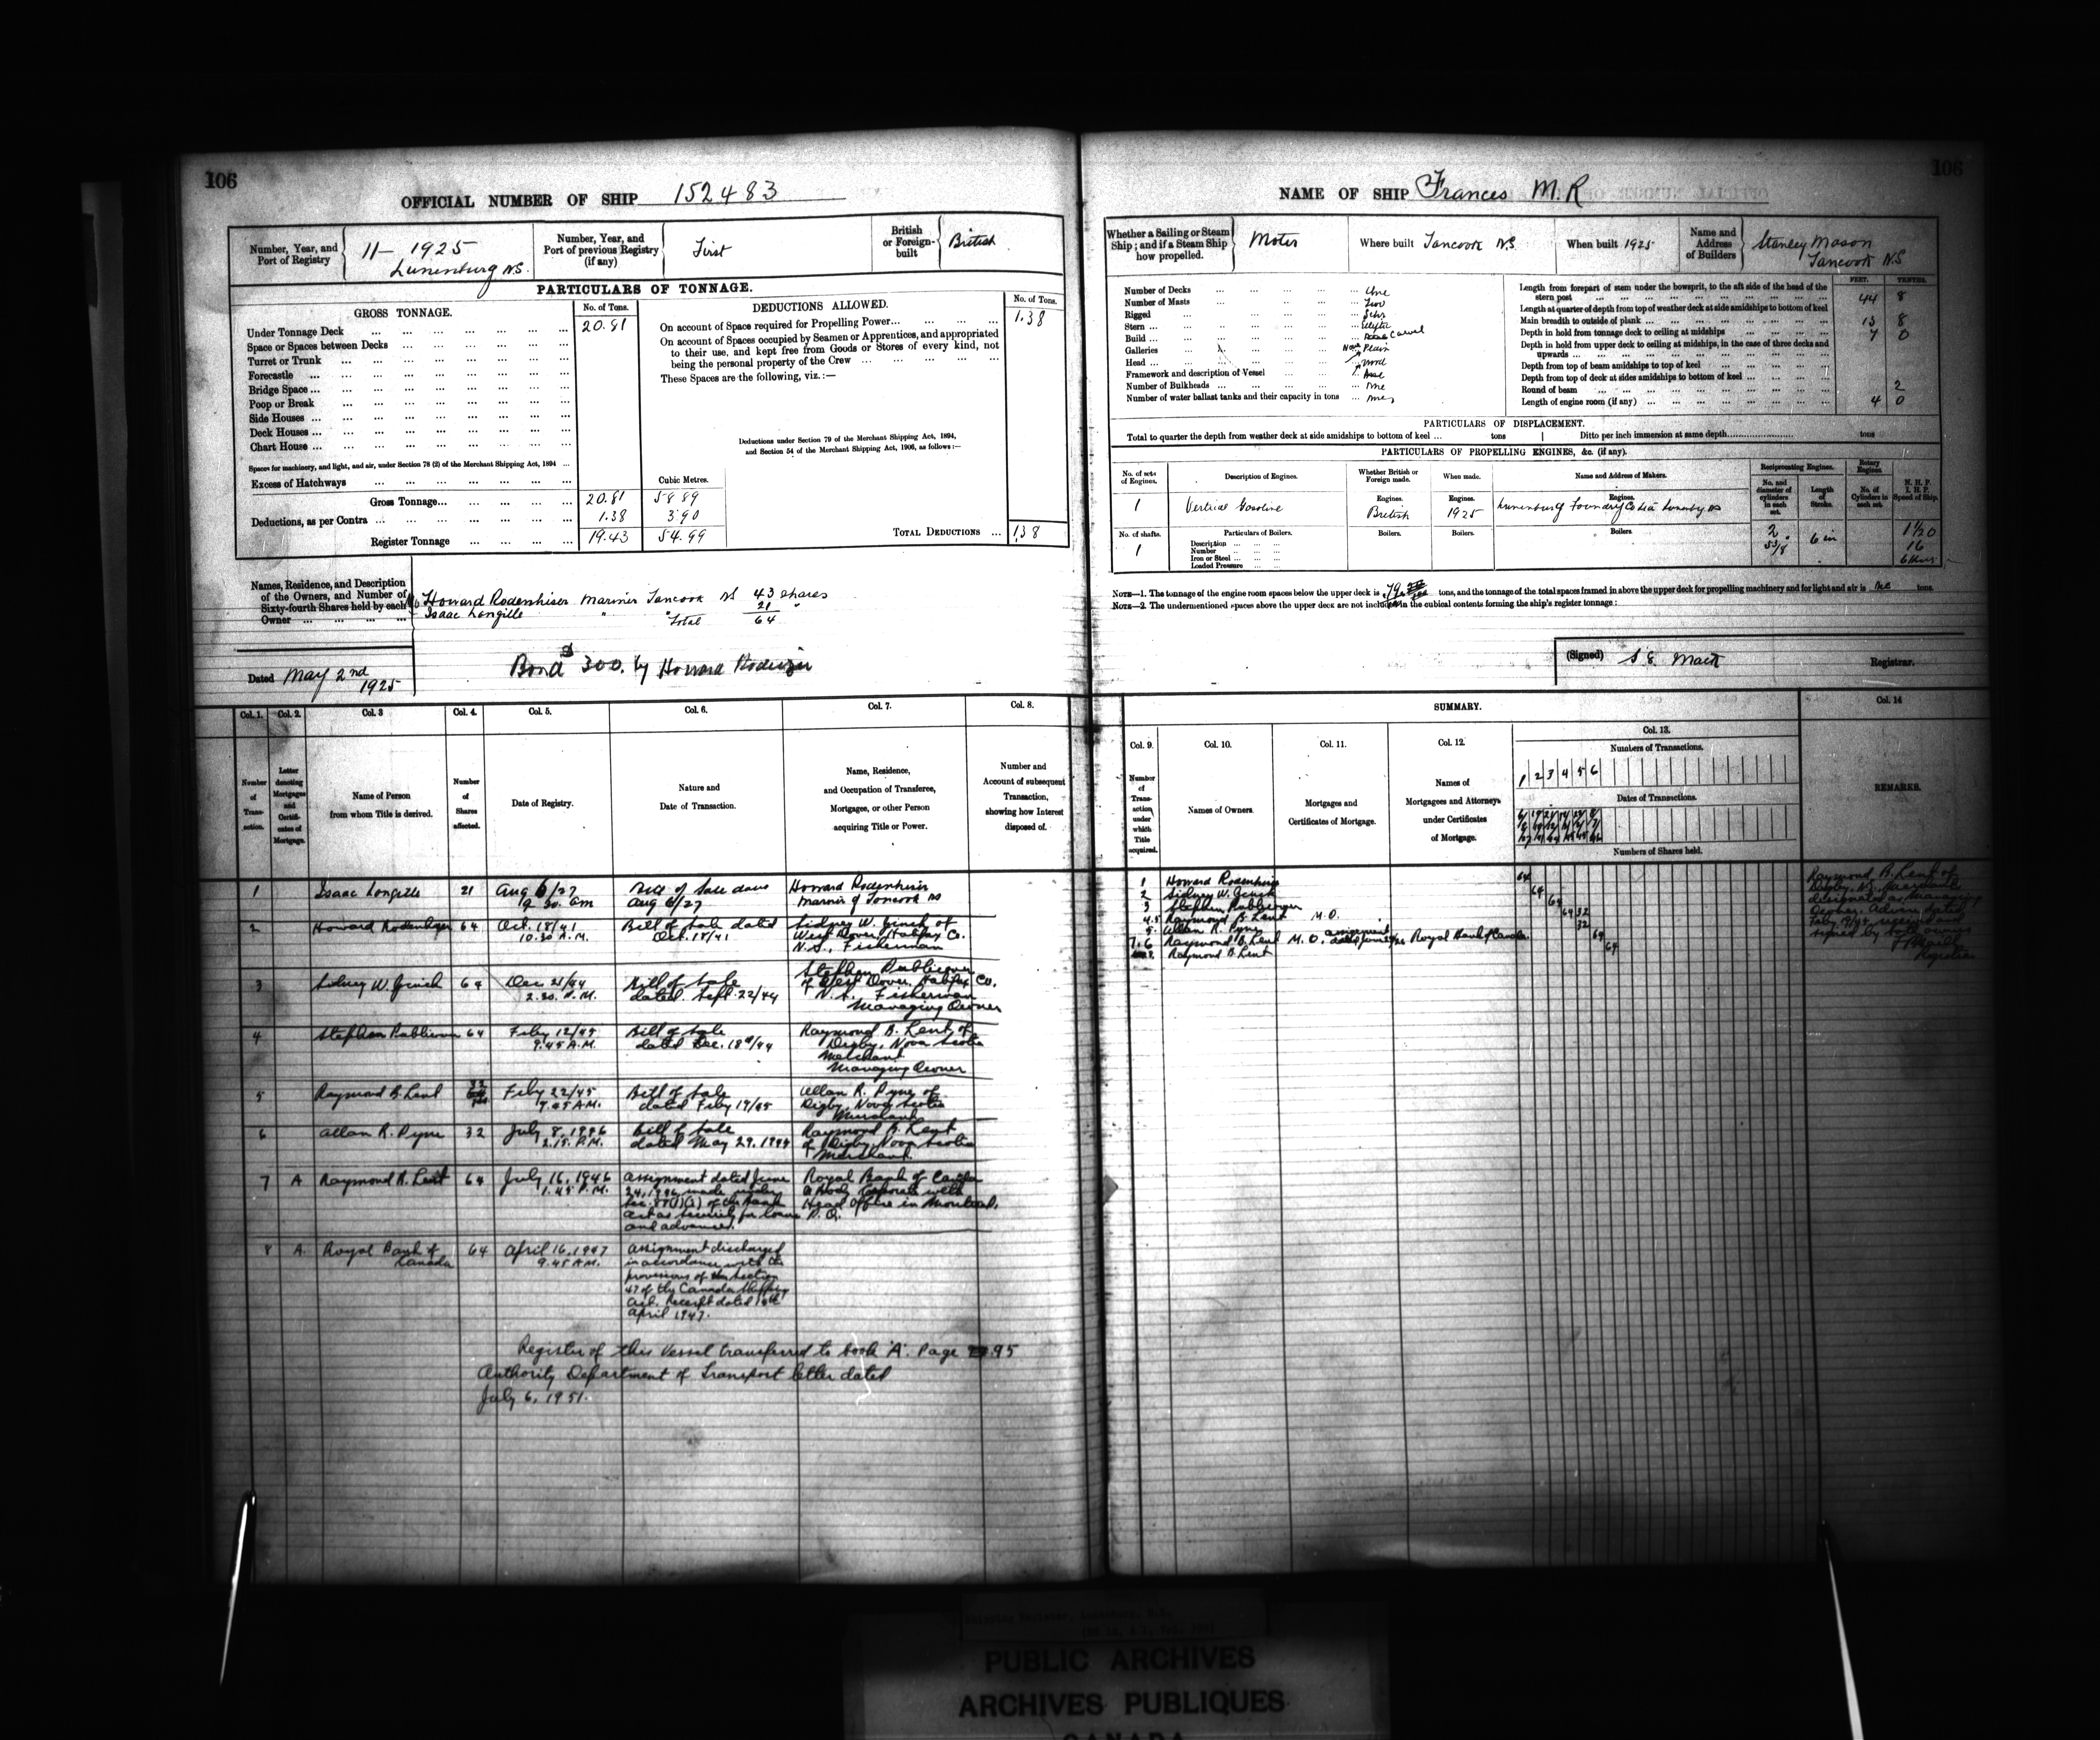 106
OFFICIAL NUMBER OF SHIP 152483
Number, Year, and Port of Registry 11 - 1925 Lunenburg NS.
Number, Year, and Port of previous Registry (if any) First
British or Foreign-built British
PARTICULARS OF TONNAGE.
GROSS TONNAGE. No. of Tons.
Under Tonnage Deck 20.81
Space or Spaces between Decks
Turret or Trunk
Forecastle
Bridge Space
Poop or Break
Side Houses
Deck Houses
Chart House
Spaces for machinery, and light, and air, under Section 78 (2) of the Merchant Shipping Act, 1894
Excess of Hatchways Cubic Metres.
Gross Tonnage 20.81 58 89
Deductions, as per Contra 1.38 3.90
Register Tonnage 19.43 54.99
DEDUCTIONS ALLOWED. No. of Tons.
On account of Space required for Propelling Power 1.38
On account of Spaces occupied by Seamen or Apprentices, and appropriated
to their use, and kept free from Goods or Stores of every kind, not
being the personal property of the Crew
These Spaces are the following, viz.:—
Deductions under Section 79 of the Merchant Shipping Act, 1894,
and Section 54 of the Merchant Shipping Act, 1906, as follows:—
TOTAL DEDUCTIONS 1.38
Names, Residence, and Description
of the Owners, and Number of
Sixty-fourth Shares held by each
Owner
Howard Rodenhiser Mariner Tancook NS 43 shares
Isaac Longille " " 21 "
Total 64
Dated May 2nd 1925
Bond $300. by Howard Rodenhiser
Col. 1. Col. 2. Col. 3 Col. 4. Col. 5. Col. 6. Col. 7. Col. 8.
Number of Transaction.
Letter denoting Mortgages and Certificates of Mortgage.
Name of Person from whom Title is derived.
Number of Shares affected.
Date of Registry.
Nature and Date of Transaction.
Name, Residence, and Occupation of Transferee, Mortgagee, or other Person acquiring Title or Power.
Number and Account of subsequent Transaction, showing how Interest disposed of.
1 Isaac Longille 21 Aug 6/27 9.30 am Bill of Sale dated Aug 6/27 Howard Rodenhiser Mariner of Tancook NS
2 Howard Rodenhiser 64 Oct. 18/41 10.30 A.M. Bill of Sale dated Oct. 18/41 Sidney W. Jinch of West Dover, Halifax Co. N.S., Fisherman
3 Sidney W. Jinch 64 Dec. 21/44 2.30. P.M. Bill of Sale dated Sept. 22/44 Stephen Publicover of West Dover, Halifax Co. N.S. Fisherman Managing Owner
4 Stephen Publicover 64 Feby 12/45 9.45 A.M. Bill of Sale dated Dec. 18th/44 Raymond B. Lent of Digby, Nova Scotia Merchant Managing Owner
5 Raymond B. Lent 32 Feby 22/45 9.05 A.M. Bill of Sale dated Feby 19/45 Allan R. Pyne of Digby, Nova Scotia Merchant
6 Allan R. Pyne 32 July 8, 1946 2.15. P.M. Bill of Sale dated May 29, 1944 Raymond B. Lent of Digby, Nova Scotia Merchant
7 A Raymond B. Lent 64 July 16, 1946 1.45 P.M. Assignment dated June 24, 1946 made under Sec. 88(1)(a) of the Bank Act as Security for loans and advances. Royal Bank of Canada a Body Corporate with Head Office in Montreal, P.Q.
8 A. Royal Bank of Canada 64 April 16, 1947 9.45 A.M. Assignment discharged in accordance with the provisions of the Section 47 of the Canada Shipping Act. Receipt dated 10th April 1947.
Register of this Vessel transferred to book 'A'. Page 95
Authority Department of Transport letter dated
July 6, 1951.
106
NAME OF SHIP Frances M.R
Whether a Sailing or Steam Ship; and if a Steam Ship how propelled. Motor
Where built Tancook N.S.
When built 1925
Name and Address of Builders Stanley Mason Tancook N.S
Number of Decks One
Number of Masts Two
Rigged Schr
Stern Elliptic
Build Carvel
Galleries None
Head Plain
Framework and description of Vessel Wood
Number of Bulkheads One
Number of water ballast tanks and their capacity in tons
FEET. TENTHS.
Length from forepart of stem under the bowsprit, to the aft side of the head of the stern post 44 8
Length at quarter of depth from top of weather deck at side amidships to bottom of keel
Main breadth to outside of plank 13 8
Depth in hold from tonnage deck to ceiling at midships 7 0
Depth in hold from upper deck to ceiling at midships, in the case of three decks and upwards
Depth from top of beam amidships to top of keel
Depth from top of deck at sides amidships to bottom of keel
Round of beam 2
Length of engine room (if any) 4 0
PARTICULARS OF DISPLACEMENT.
Total to quarter the depth from weather deck at side amidships to bottom of keel tons Ditto per inch immersion at same depth tons
PARTICULARS OF PROPELLING ENGINES, &c. (if any).
No. of sets of Engines. Description of Engines. Whether British or Foreign made. When made. Name and Address of Makers. Reciprocating Engines. Rotary Engines. N. H. P. I. H. P. Speed of Ship.
No. and diameter of cylinders in each set. Length of Stroke. No. of Cylinders in each set.
1 Vertical Gasoline Engines. British Engines. 1925 Engines. Lunenburg Foundry Co Ltd Lunenburg NS
No. of shafts. Particulars of Boilers. Boilers. Boilers. Boilers.
1 Description
Number
Iron or Steel
Loaded Pressure
2 5 3/8 6 in 1 1/20 16 6 Knots
NOTE—1. The tonnage of the engine room spaces below the upper deck is .79 tons, and the tonnage of the total spaces framed in above the upper deck for propelling machinery and for light and air is tons.
NOTE—2. The undermentioned spaces above the upper deck are not included in the cubical contents forming the ship's register tonnage:
(Signed) S E Mack Registrar.
SUMMARY.
Col. 9. Col. 10. Col. 11. Col. 12. Col. 13. Col. 14
Number of Transaction under which Title acquired.
Names of Owners.
Mortgages and Certificates of Mortgage.
Names of Mortgagees and Attorneys under Certificates of Mortgage.
Numbers of Transactions.
1 2 3 4 5 6
Dates of Transactions.
Numbers of Shares held.
REMARKS.
1 Howard Rodenhiser 64
2 Sidney W. Jinch 64
3 Stephen Publicover 64
4.5 Raymond B. Lent M.O. 64 32
5 Allan R. Pyne 32
7.6 Raymond B. Lent M.O. assignment dated June 24/46 Royal Bank of Canada 64
Raymond B. Lent 64
Raymond B. Lent of
Digby, N.S. Merchant
designated as Managing
Owner. Advice dated
Feby 19/45 received and
signed by both owners
Registrar
PUBLIC ARCHIVES
ARCHIVES PUBLIQUES
CANADA